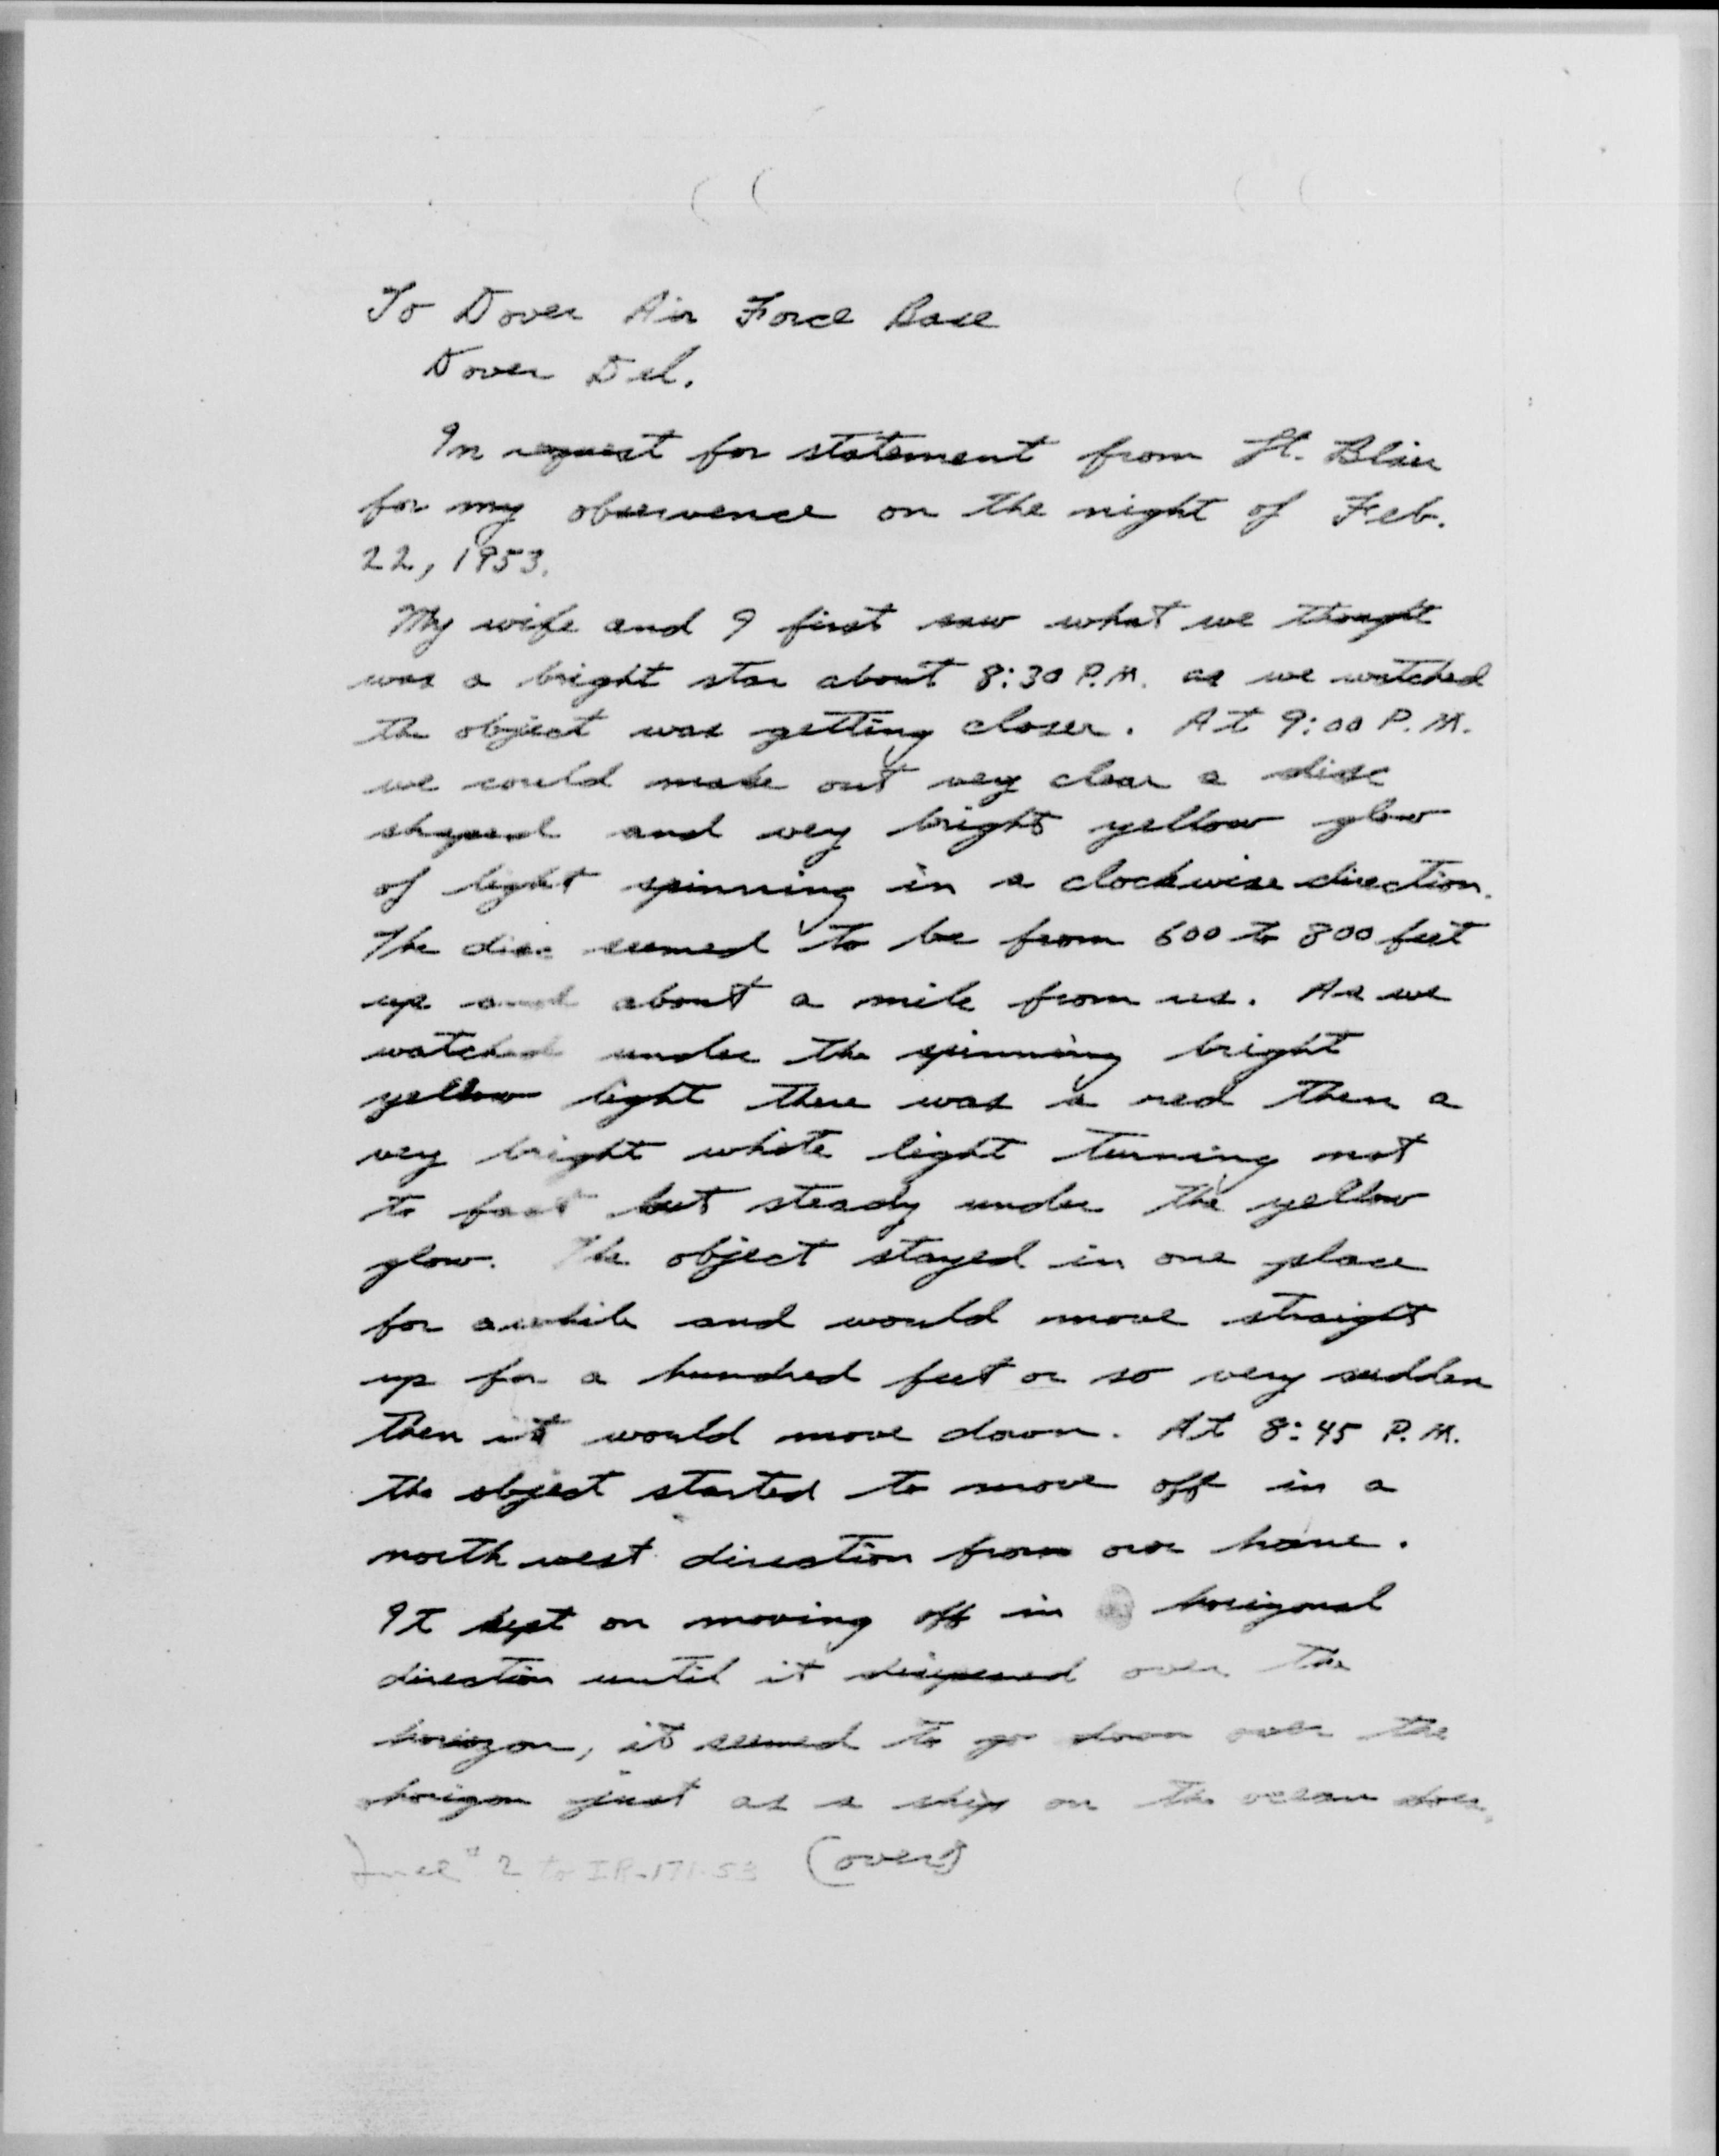 To Dover Air Force Base
Dover Del.
In request for statement from Lt. Blair
for my obserwence on the night of Feb.
22, 1953.
My wife and I first saw what we thought
was a bright star about 8:30 P.M. as we watched
the object was getting closer. At 9:00 P.M.
we could make out very clear a disc
shaped and very bright yellow glow
of light spinning in a clockwise direction.
The disc seemed to be from 600 to 800 feet
up and about a mile from us. As we
watched under the spinning bright
yellow light there was a red then a
very bright white light turning not
to fast but steady under the yellow
glow. The object stayed in one place
for awhile and would move straight
up for a hundred feet or so very sudden
then it would move down. At 8:45 P.M.
the object started to move off in a
north west direction from our home.
It kept on moving off in horizonal
direction until it over the
horizon, it seemed to go down over the
horizon just as a ship on the ocean does.
Incl #2 to IR-171-53 (over)